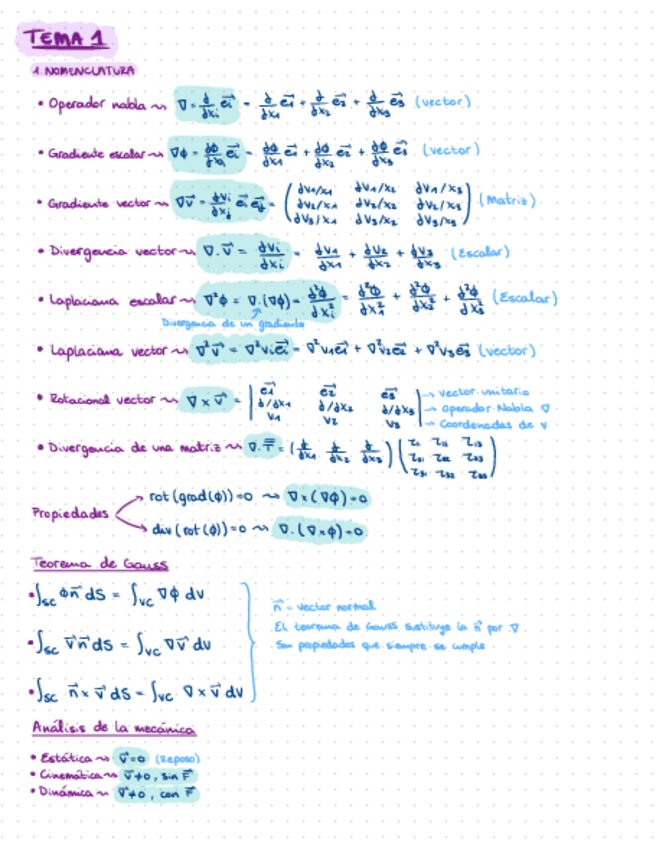 TEMA 1
1. NOMENCLATURA
• Operador nabla ~> ∇ = ∂/∂xᵢ e⃗ᵢ = ∂/∂x₁ e⃗₁ + ∂/∂x₂ e⃗₂ + ∂/∂x₃ e⃗₃ (vector)
• Gradiente escalar ~> ∇ϕ = ∂ϕ/∂xᵢ e⃗ᵢ = ∂ϕ/∂x₁ e⃗₁ + ∂ϕ/∂x₂ e⃗₂ + ∂ϕ/∂x₃ e⃗₃ (vector)
• Gradiente vector ~> ∇v⃗ = ∂vᵢ/∂xⱼ e⃗ᵢ e⃗ⱼ = ( ∂v₁/x₁ ∂v₁/x₂ ∂v₁/x₃ (Matriz)
∂v₂/x₁ ∂v₂/x₂ ∂v₂/x₃
∂v₃/x₁ ∂v₃/x₂ ∂v₃/x₃ )
• Divergencia vector ~> ∇.v⃗ = ∂vᵢ/∂xᵢ = ∂v₁/∂x₁ + ∂v₂/∂x₂ + ∂v₃/∂x₃ (Escalar)
• Laplaciana escalar ~> ∇²ϕ = ∇.(∇ϕ) = ∂²ϕ/∂xᵢ² = ∂²ϕ/∂x₁² + ∂²ϕ/∂x₂² + ∂²ϕ/∂x₃² (Escalar)
Divergencia de un gradiente
• Laplaciana vector ~> ∇²v⃗ = ∇²vᵢe⃗ᵢ = ∇²v₁e⃗₁ + ∇²v₂e⃗₂ + ∇²v₃e⃗₃ (vector)
• Rotacional vector ~> ∇ × v⃗ = | e⃗₁ e⃗₂ e⃗₃ | → vector unitario
∂/∂x₁ ∂/∂x₂ ∂/∂x₃ → Operador Nabla ∇
v₁ v₂ v₃ → Coordenadas de v
• Divergencia de una matriz ~> ∇.T = (∂/∂x₁ ∂/∂x₂ ∂/∂x₃)
Propiedades
rot(grad(ϕ))=0 ~> ∇×(∇ϕ)=0
div(rot(ϕ))=0 ~> ∇.(∇×ϕ)=0
Teorema de Gauss
• ∫SC ϕn⃗ dS = ∫VC ∇ϕ dv
• ∫SC v⃗n⃗ dS = ∫VC ∇v⃗ dv
• ∫SC n⃗ × v⃗ dS = ∫VC ∇ × v⃗ dv
n⃗ = vector normal
El teorema de Gauss sustituye la n⃗ por ∇
Son propiedades que siempre se cumple
Análisis de la mecánica
• Estática ~> v⃗=0 (Reposo)
• Cinemática ~> v⃗≠0, sin F⃗
• Dinámica ~> v⃗≠0, con F⃗